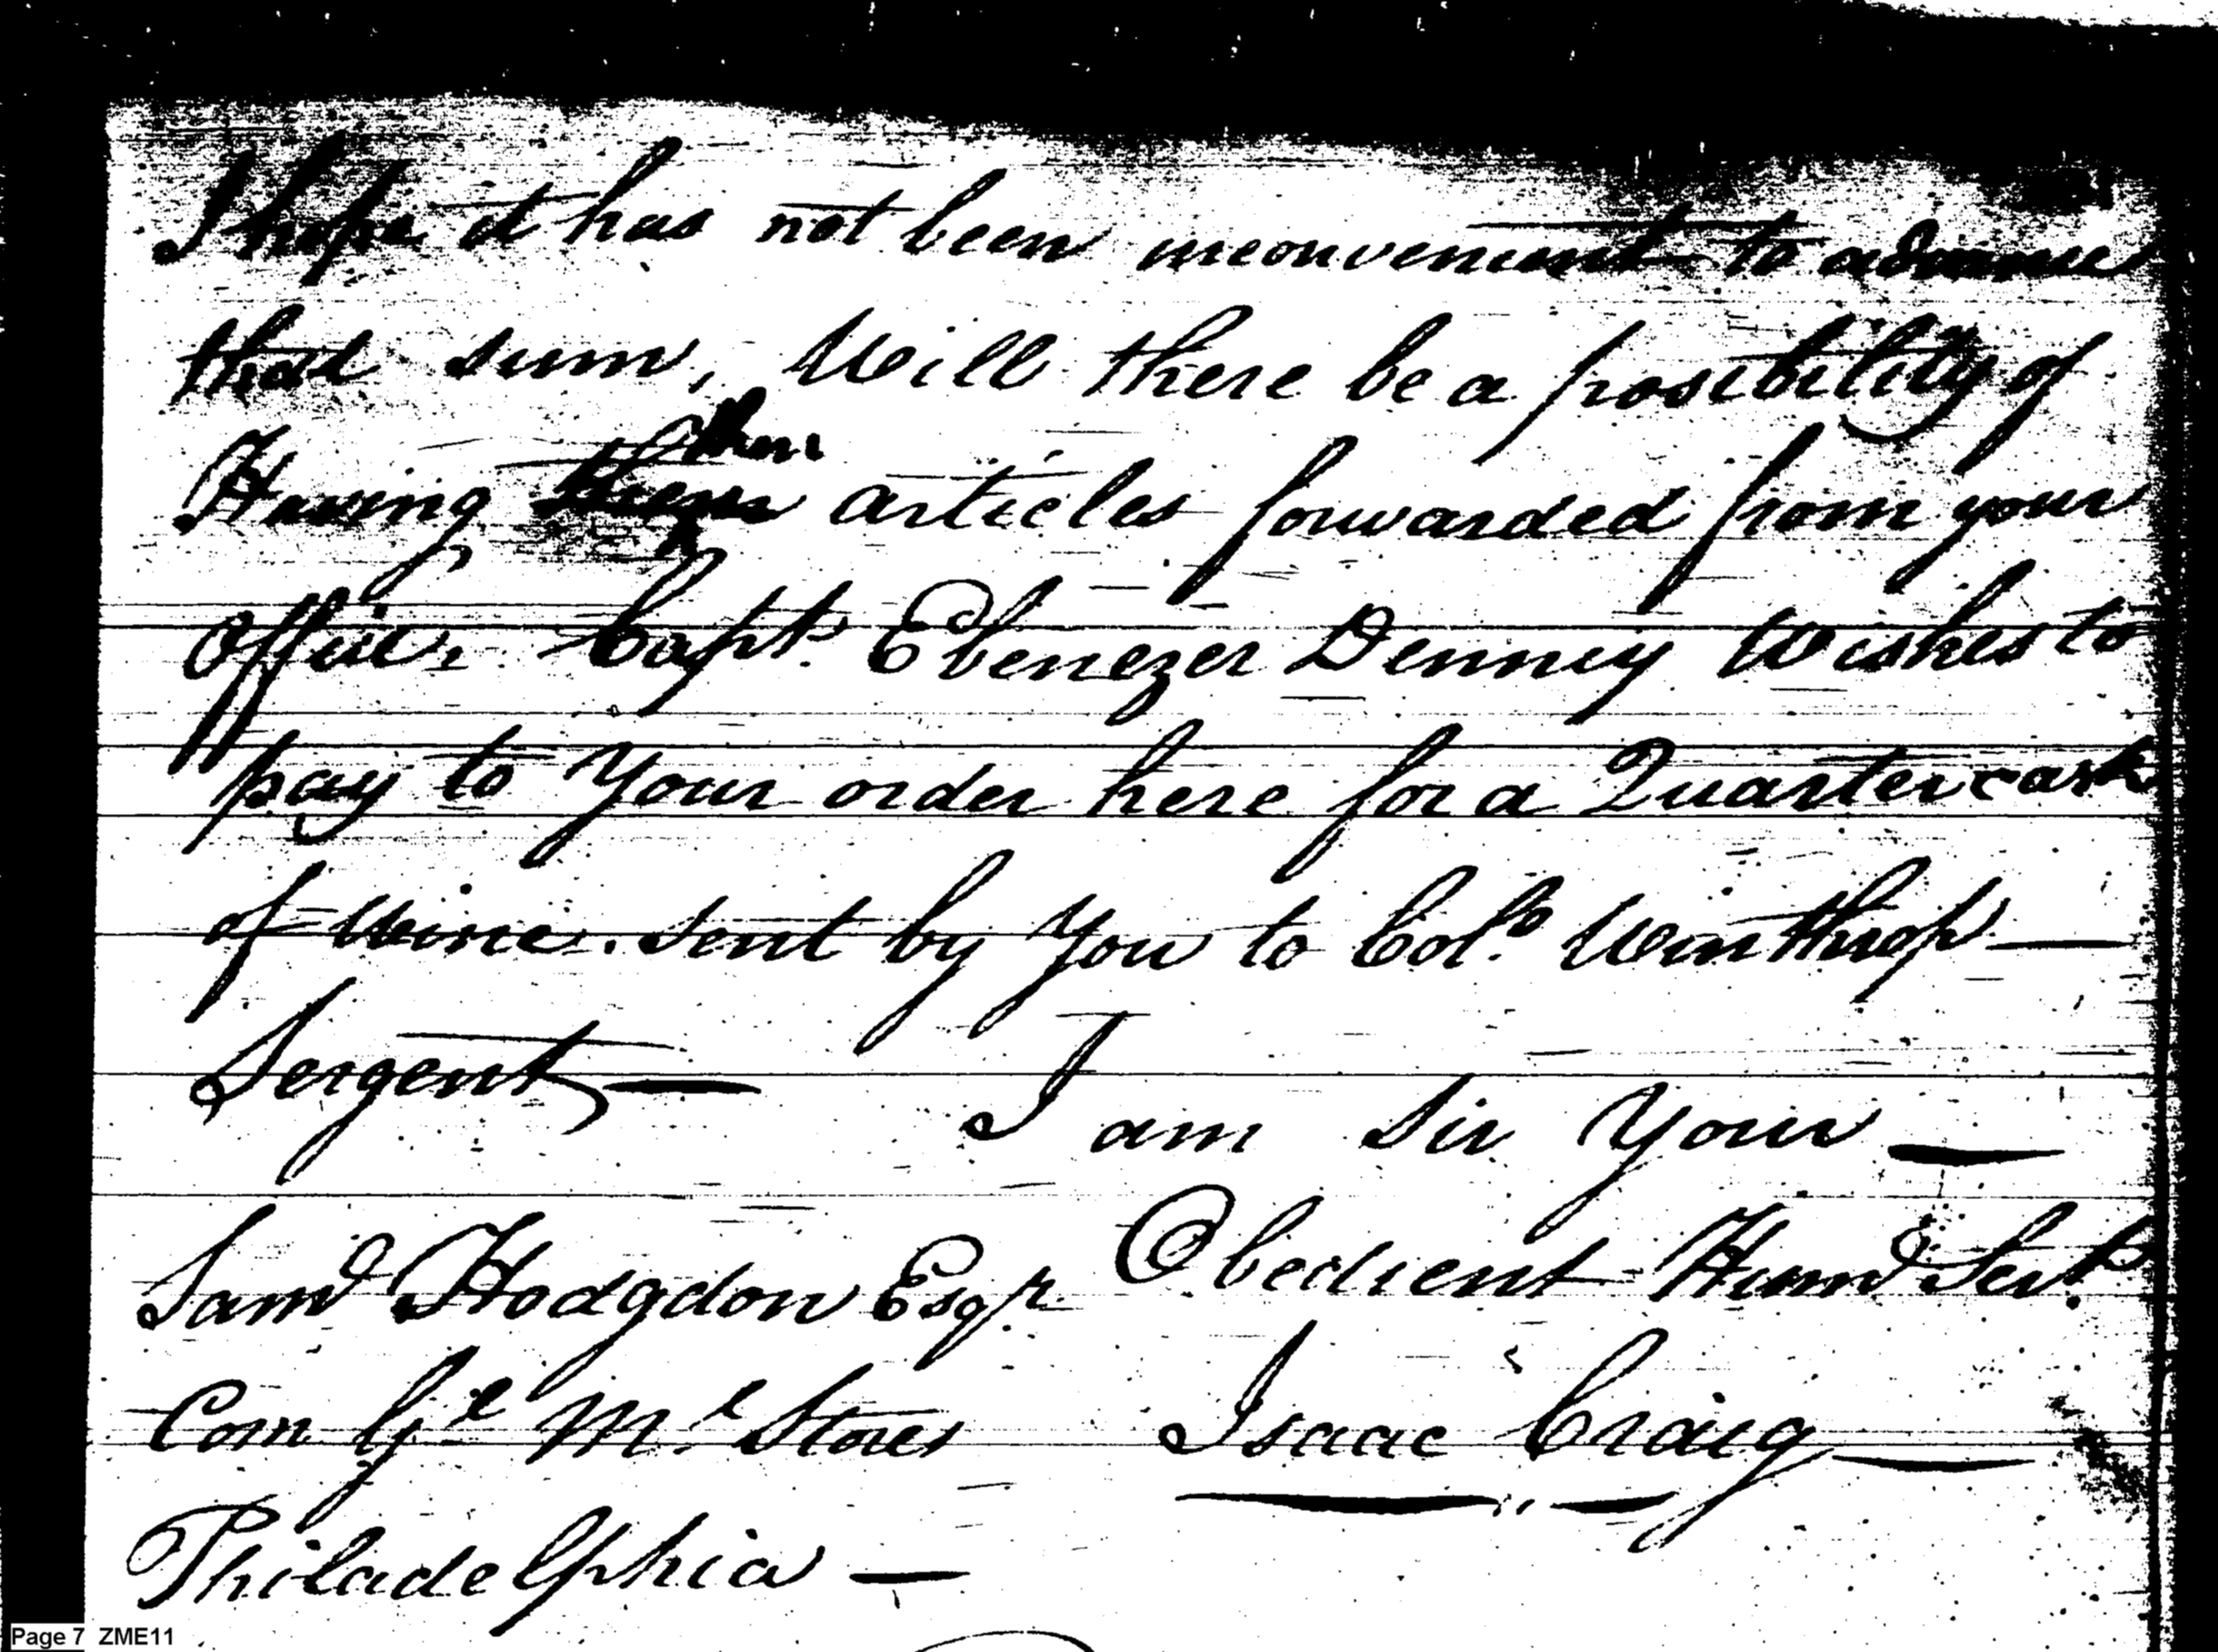 I hope it has not been inconvenient to advance
that sum, Will there be a posibility of
Having them articles forwarded from your
Office, Capt. Ebenezer Denney Wishes to
pay to Your order here for a Quarter cask
of Wine. sent by You to Colo. Winthrop —
Sergent, —
I am Sir Your —
Obedient Humb Servt.
Saml Hodgdon Esqr.
Com Gl Ml. Stores
Isaac Craig —
Philadelphia —
Page 7 ZME11